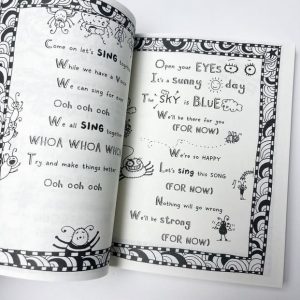 Come on let's SING
While we have a
We can sing for
Ooh ooh ooh
We all SING
WHOA WHOA WHOA
Try and make things better
Ooh ooh ooh
Open your EYES
It's a sunny day
The SKY is BLUE
We'll be there for you
(FOR NOW)
We're so HAPPY
Let's sing this SONG
(FOR NOW)
Nothing will go wrong
We'll be strong
(FOR NOW)